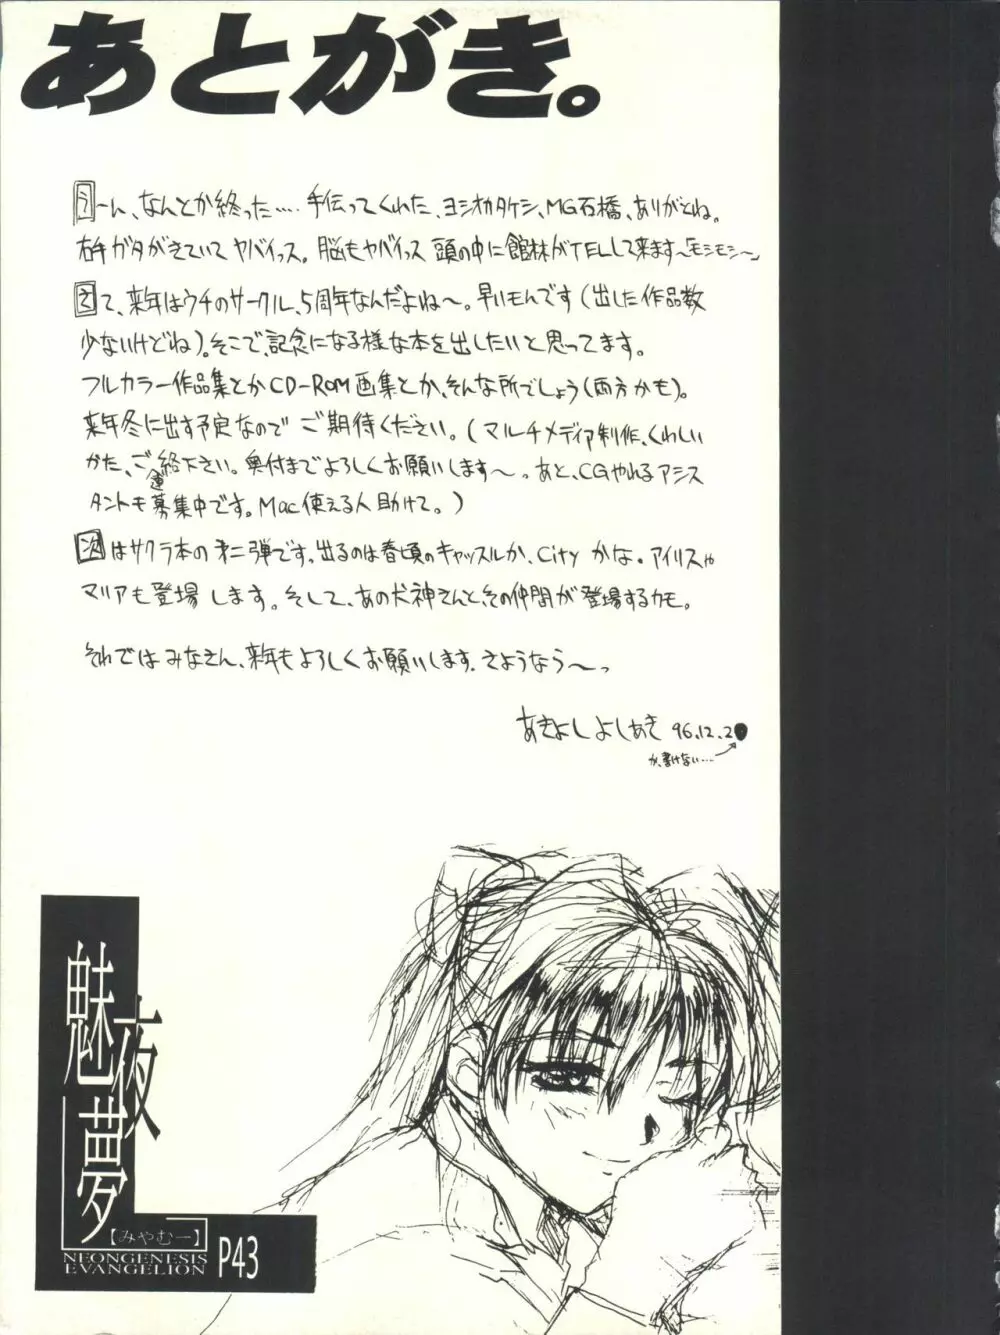 あとがき。
うーん、なんとか終った…. 手伝ってくれた、ヨシオカタケシ、MG石橋、ありがとね。
右手ガタがきていてヤバイっス。脳もヤバイっス 頭の中に館林がTELして来ます〜「モシモシ〜」
さて、来年はウチのサークル、5周年なんだよね〜。早いモんです(出した作品数
少ないけどね)。そこで、記念になる様な本を出したいと思ってます。
フルカラー作品集とかCD-ROM画集とか、そんな所でしょう(両方かも)。
来年冬に出す予定なので ご期待ください。(マルチメディア制作、くわしい
かた、ご連絡下さい。奥付までよろしくお願いします〜。あと、CGやれるアシス
タントも募集中です。Mac使える人助けて。)
次はサクラ本の才二弾です。出るのは春頃のキャッスルか、Cityかな。アイリスや
マリアも登場します。そして、あの犬神さんと、その仲間が登場するカモ。
それではみなさん、来年もよろしくお願いします。さようなら〜っ
あきよしよしあき 96.12.2
が、書けない…
魅夜夢
【みやむー】
NEONGENESIS
EVANGELION
P43